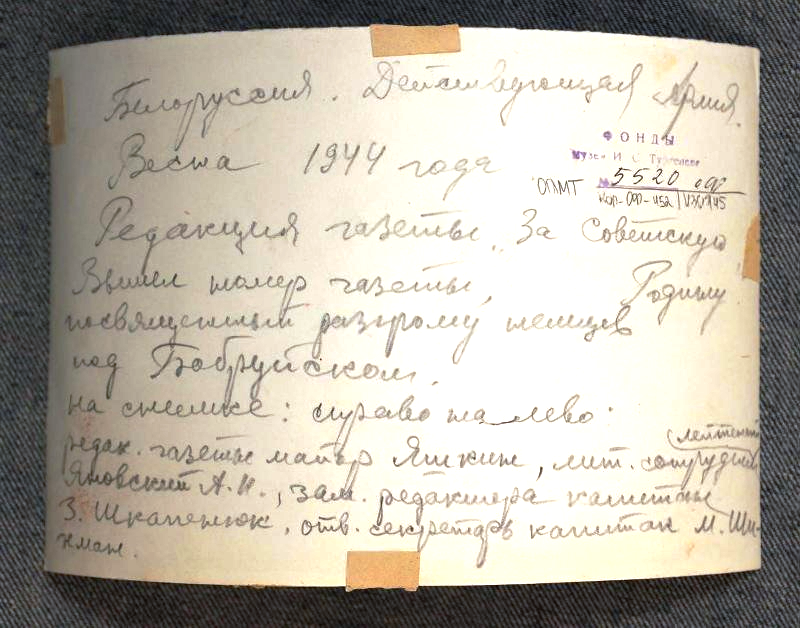 Белоруссия. Действующая Армия.
Весна 1944 года
ФОНДЫ
Музея И. С. Тургенева
№ 5520 оф
ОПМТ
Редакция газеты „За Советскую
Родину
Вышел номер газеты,
посвященный разгрому немцев
под Бобруйском.
на снимке: справо на лево:
редак. газеты майор Яшкин, лит. сотрудник лейтенант
Яновский А. И., зам. редактора капитан
З. Шкапенюк, отв. секретарь капитан М. Ши-
нман.